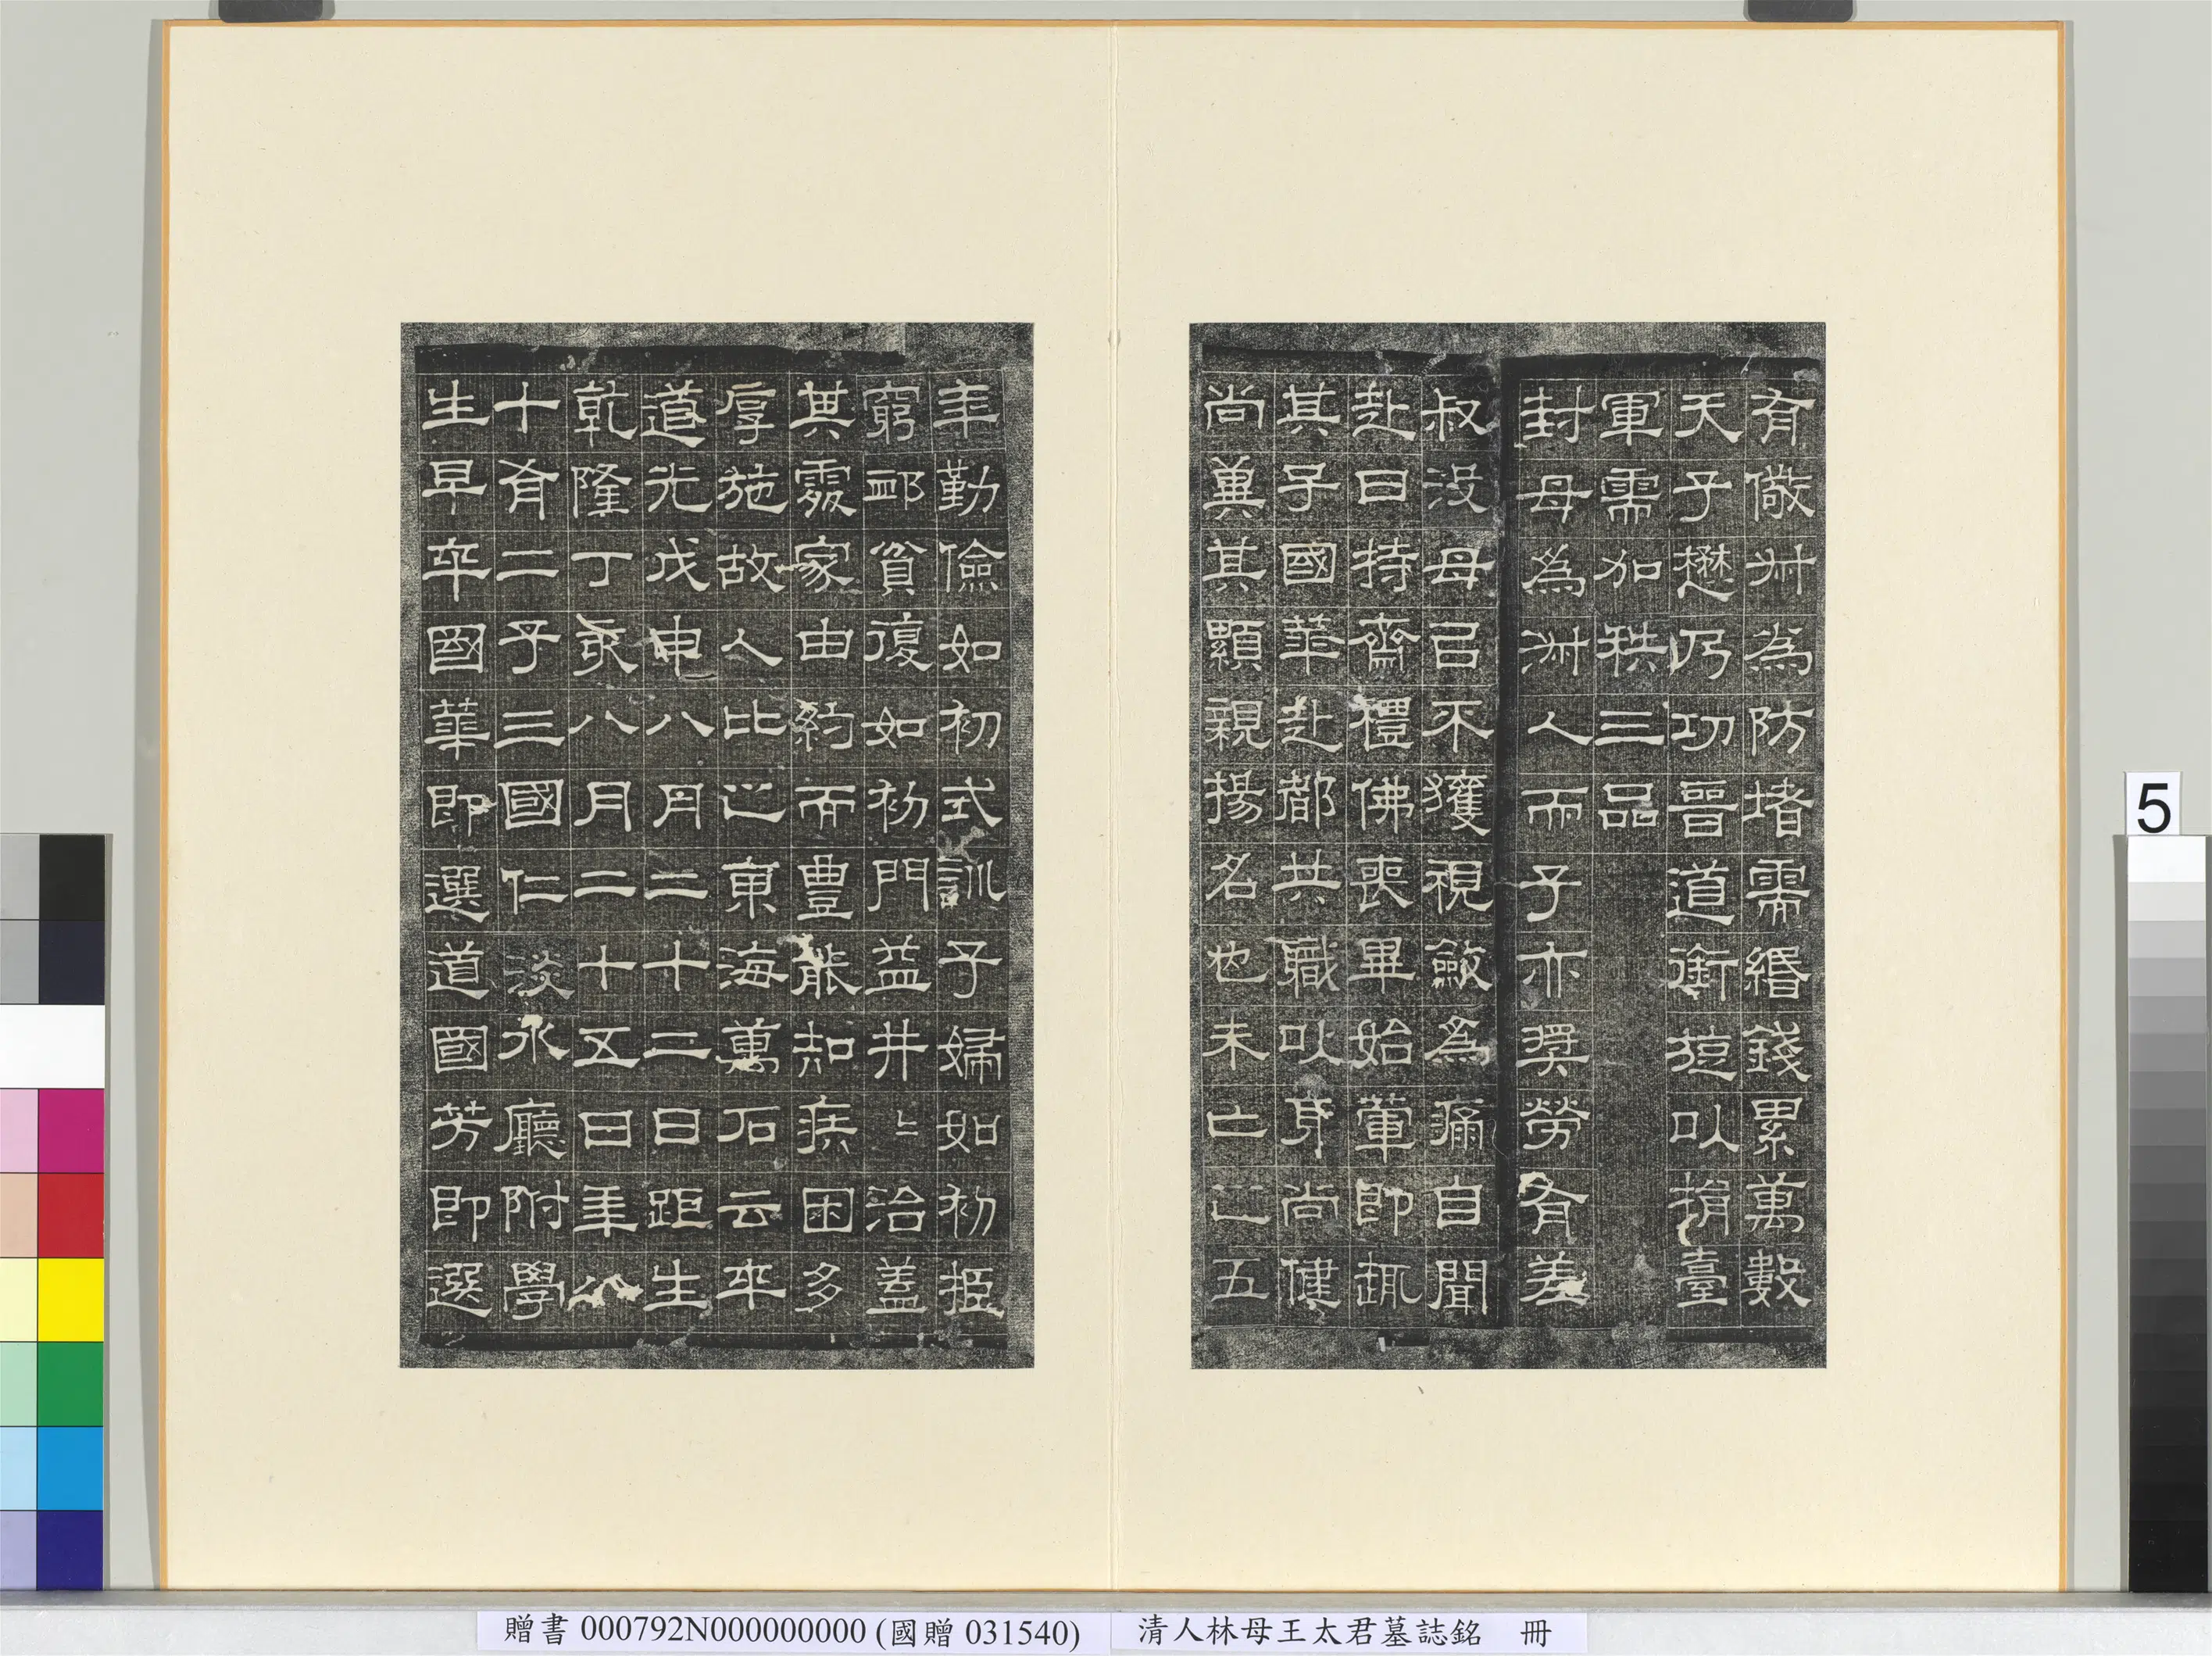 有儆叔為防堵需緡錢累萬數
天子懋乃功晉道銜旋以捐臺
軍需加秩三品
封母為淑人而子亦獎勞有差
叔沒母㠯不獲視斂為痛自聞
赴日持齋禮佛喪畢始葷即輒
其子國華赴都共職以身尚健
尚冀其顯親揚名也未亡之五
年勤儉如初式訓子婦如初振
窮卹貧復如初門益井〻治蓋
其處家由約而豐能知疾困多
厚施故人比之東海萬石云卒
道光戊申八月二十二日距生
乾隆丁亥八月二十五日年八
十有二子三國仁淡水廳附學
生早卒國華即選道國芳即選
5
贈書 000792N000000000 (國贈 031540)
清人林母王太君墓誌銘　冊